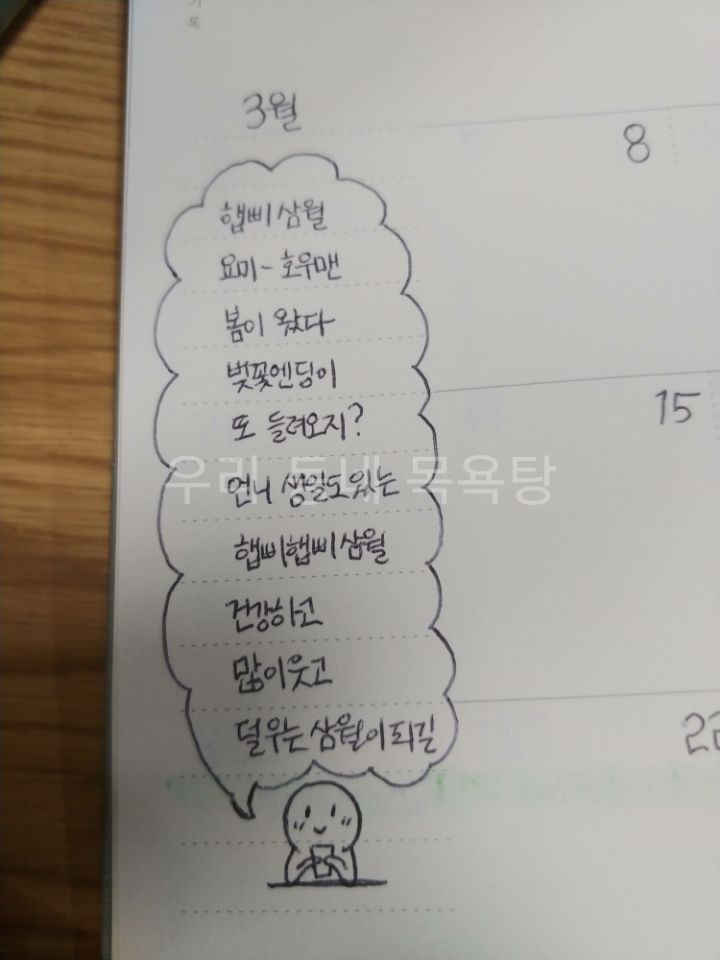 기
록
3월
8
햅삐삼월
요미~ 호우맨
봄이 왔다
벚꽃엔딩이
또 들려오지?
15
우리 동네 목욕탕
언니 생일도있는
햅삐햅삐삼월
건강하고
많이웃고
덜우는 삼월이되길
22